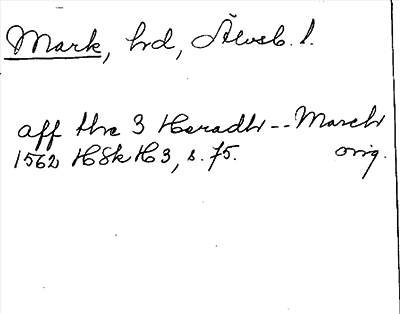 Mark, hd, Älvsb. l.
aff the 3 Heradhr -- March
1562 HSkH 3, s. 75. orig.